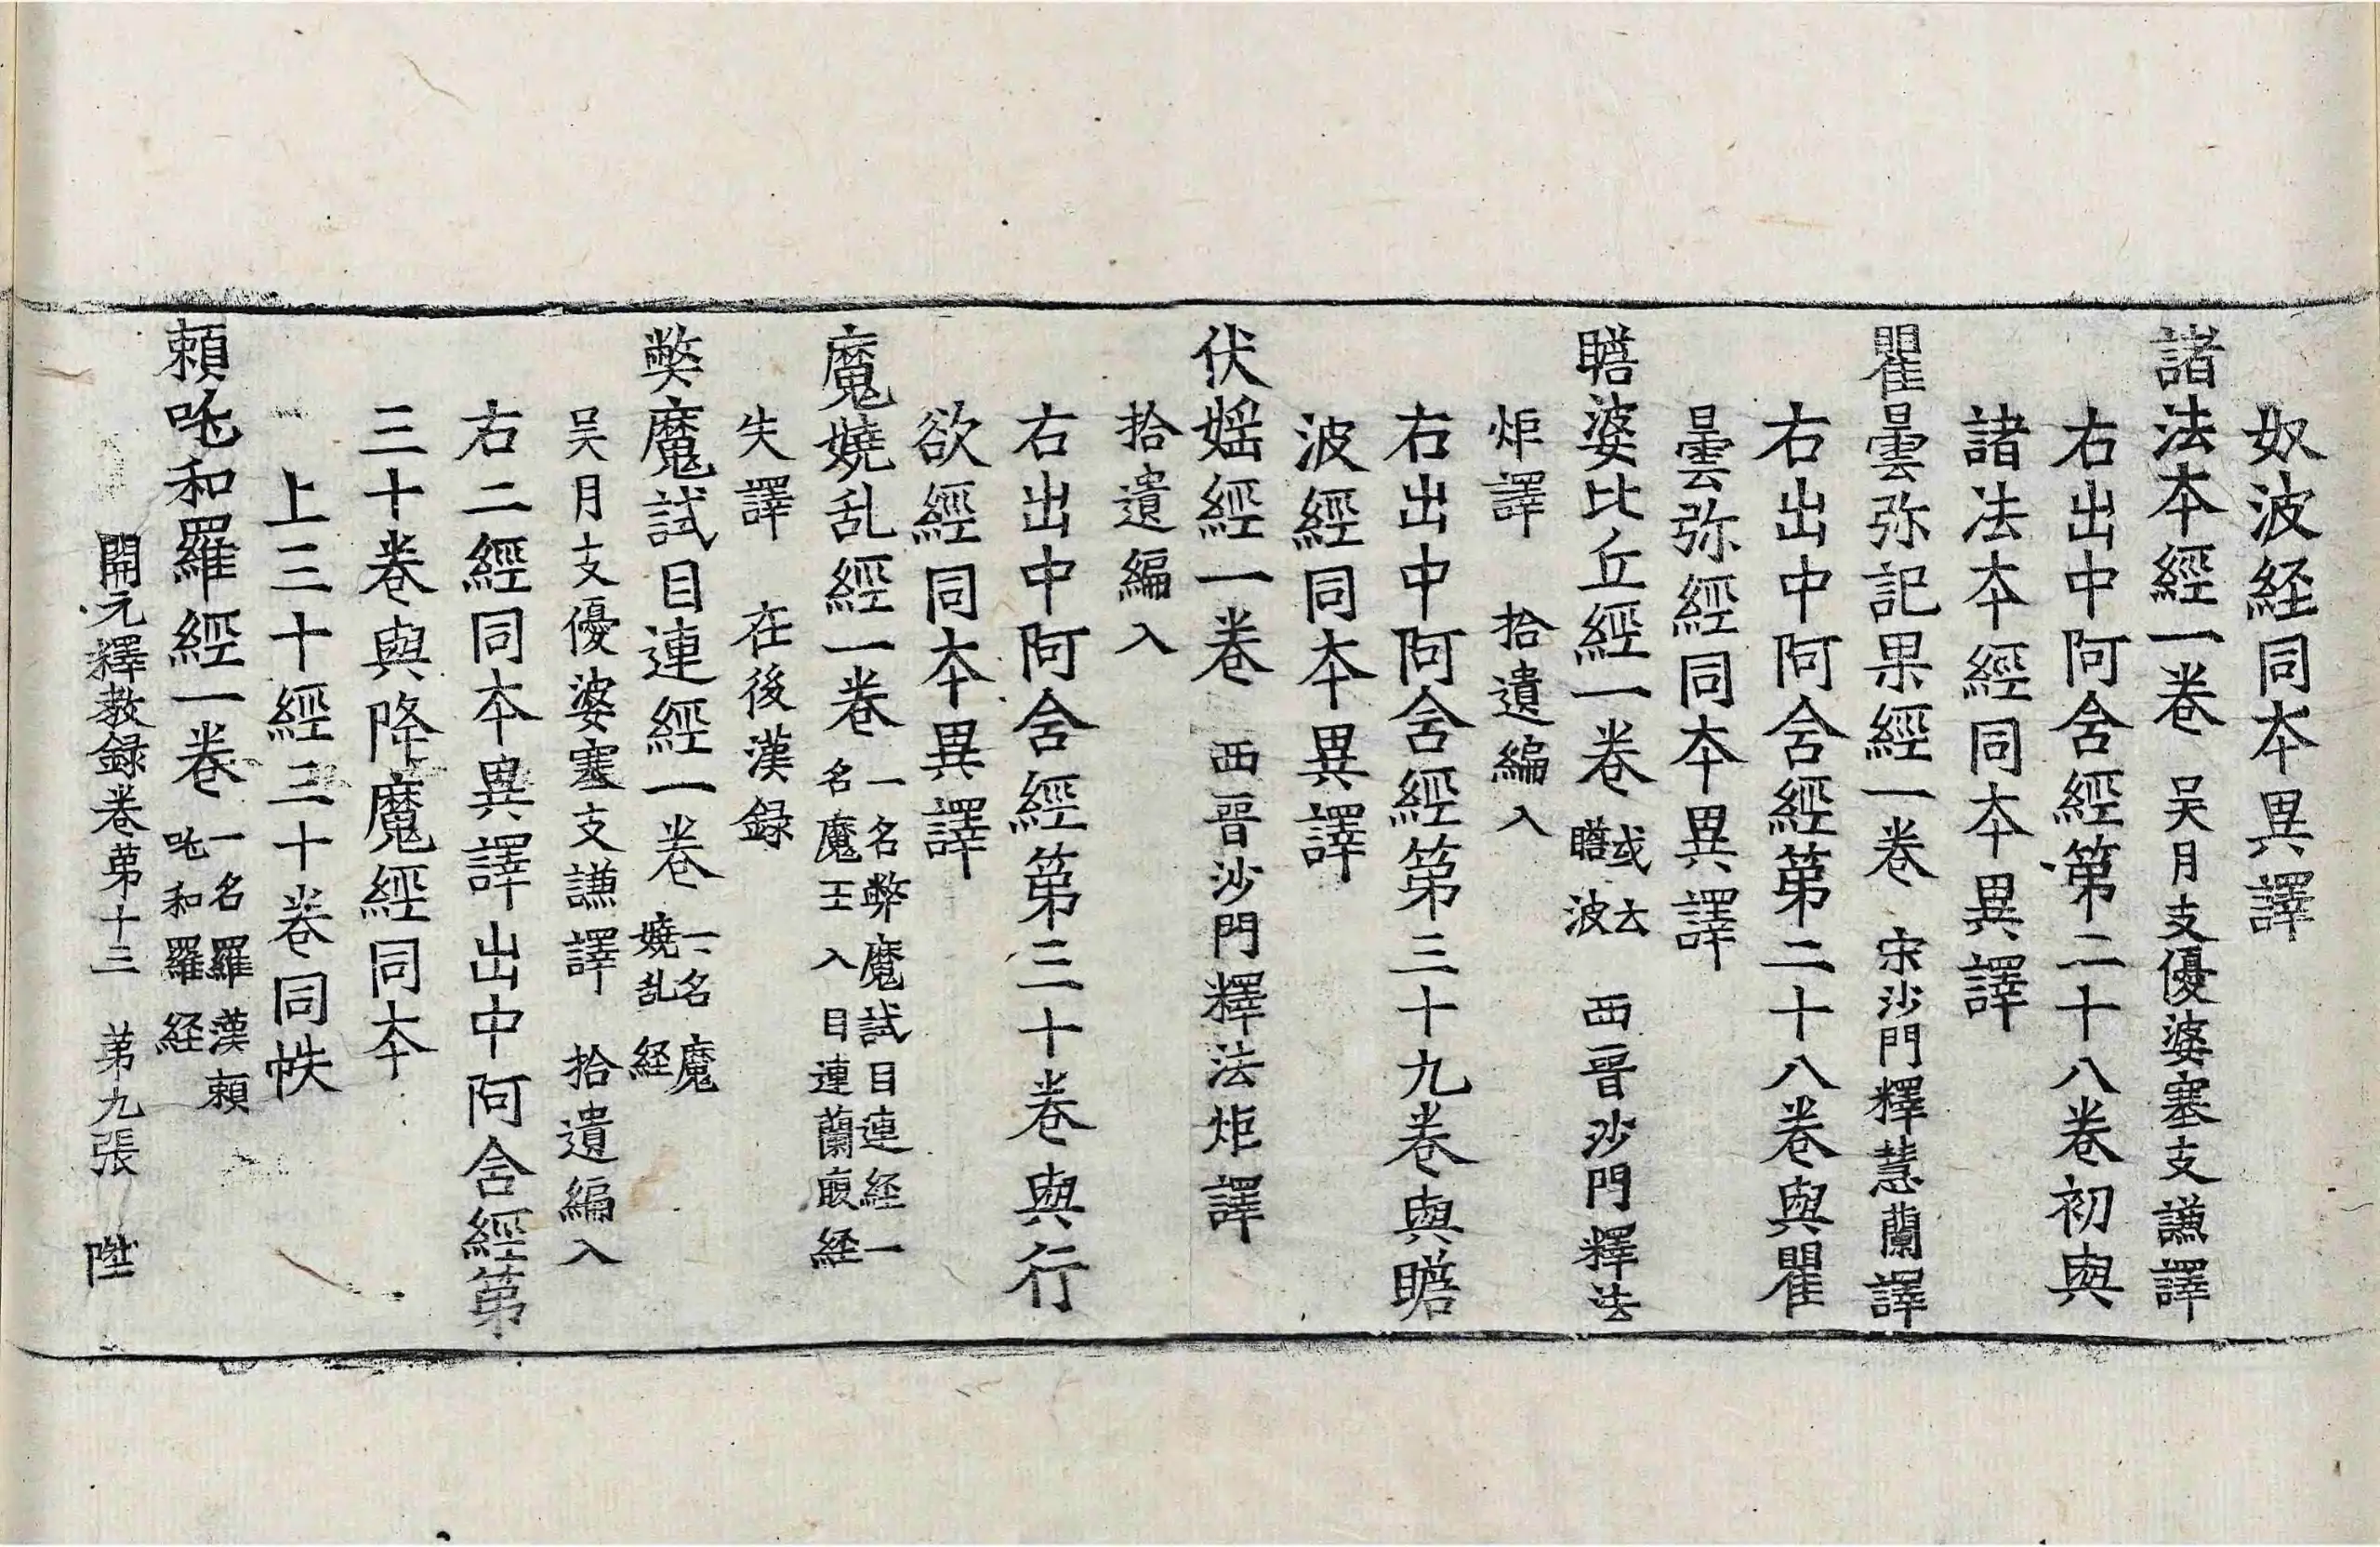 奴波経同本異譯
諸法本經一卷 吴月支優婆塞支謙譯
右出中阿含經第二十八卷初與
諸法本經同本異譯
瞿曇弥記果經一卷 宋沙門釋慧蘭譯
右出中阿含經第二十八卷與瞿
曇弥經同本異譯
瞻婆比丘經一卷 或云瞻波 西晉沙門釋法
炬譯 拾遺編入
右出中阿含經第三十九卷與瞻
波經同本異譯
伏婬經一卷 西晉沙門釋法炬譯
拾遺編入
右出中阿含經第三十卷與行
欲經同本異譯
魔嬈乱經一卷 一名弊魔試目連經一名魔王入目連蘭腹経
失譯 在後漢録
弊魔試目連經一卷 一名魔嬈乱経
吴月支優婆塞支謙譯 拾遺編入
右二經同本異譯出中阿含經第
三十卷與降魔經同本
上三十經三十卷同帙
頼吒和羅經一卷 一名羅漢頼吒和羅経
開元釋教録卷第十三 第九張 陞